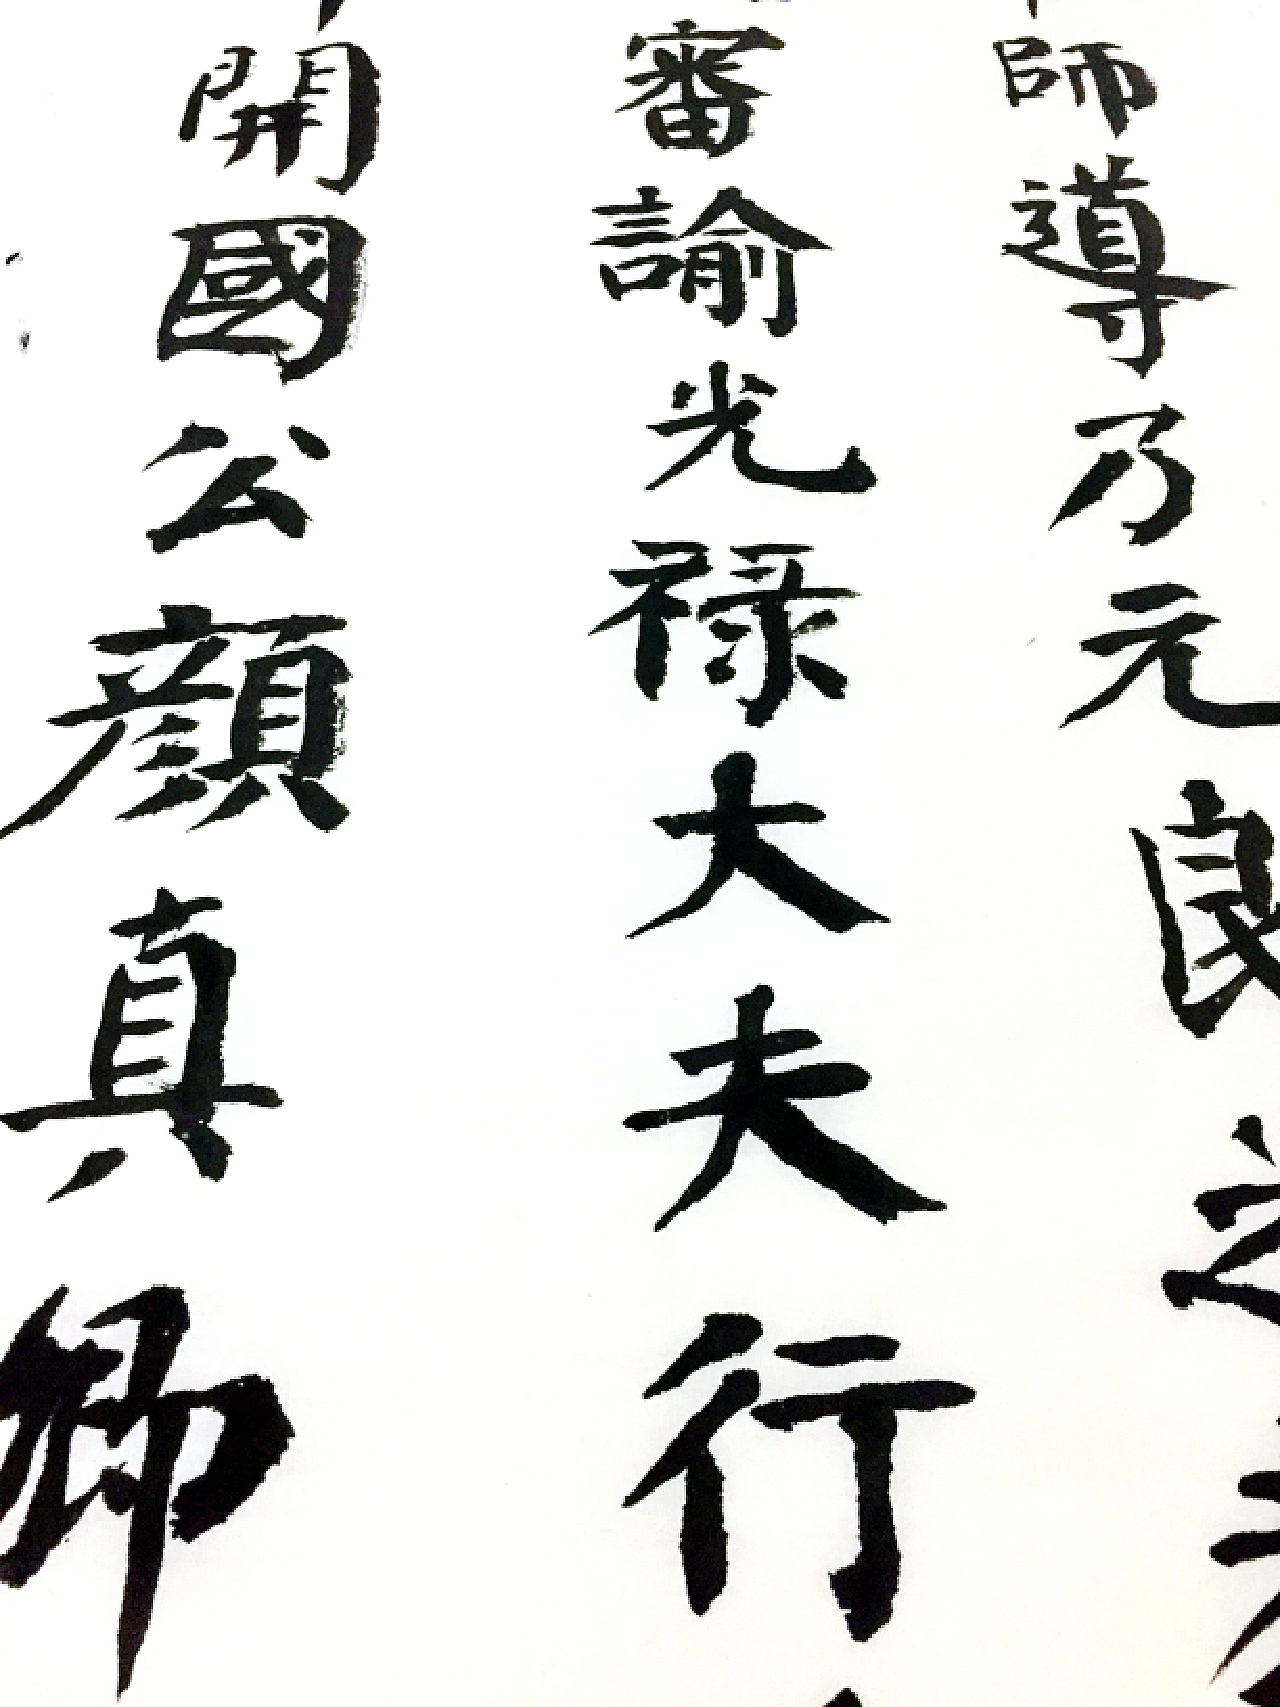 師導乃元良之
審諭光禄大夫行
開國公顔真卿